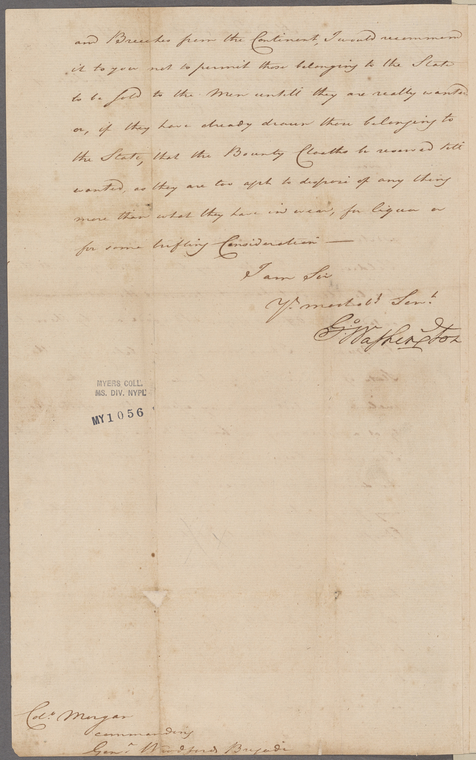 and Breeches from the Continent, I would recommend
it to you not to permit those belonging to the State
to be sold to the Men untill they are really wanted
or, if they have already drawn those belonging to
the State, that the Bounty Cloaths be reserved till
wanted, as they are too apt to dispose of any thing
more than what they have in wear, for liquor or
for some trifling Consideration —
I am Sir
Yr. most obt. Servt.
Go: Washington
MYERS COLL.
MS. DIV. NYPL
MY1056
Colo. Morgan
commanding
Genl. Woodfords Brigade